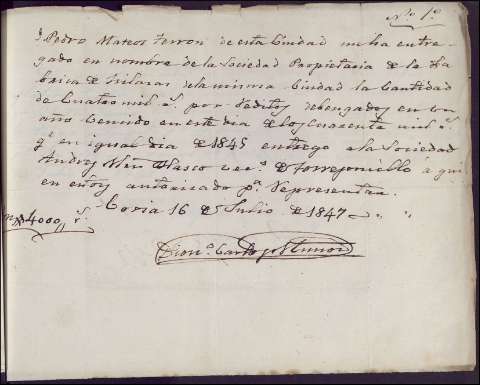 Nº 1º
D. Pedro Mateos Terron de esta Ciudad me ha entre-
gado en nombre de la Sociedad Propietaria de la Fa-
brica de Hilaras de la misma Ciudad la Cantidad
de Cuatro mil r.s por Reditos debengados en un
año bencido en este dia de los Cuarenta mil r.s
q.e en igual dia de 1845 entrego a la Sociedad
Andres Blasco vec.o de Torrejoncillo á qui
en estoy autorizado p.a Representar.
Coria 16 de Julio de 1847
4000 r.s
Dion.o